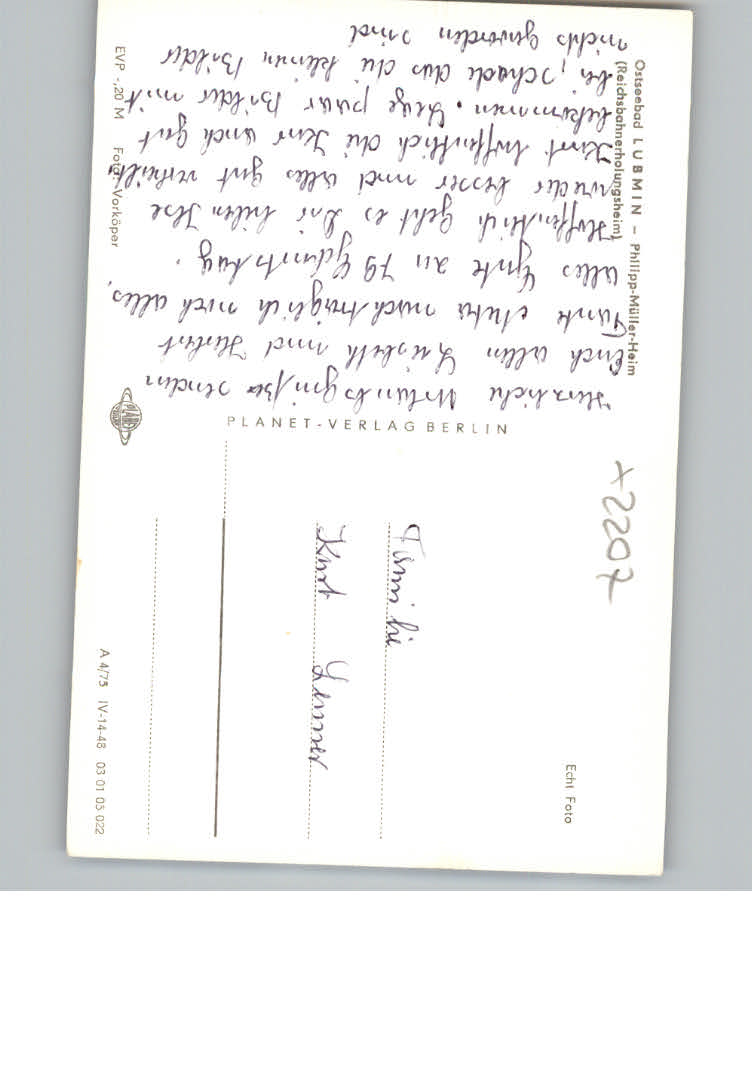 Ostseebad LUBMIN – Philipp-Müller-Heim
(Reichsbahnerholungsheim)
Herzliche Urlaubsgrüße senden
Euch allen Lisbeth und Herbert
Tante Meta nachträglich noch alles,
alles Gute zu 79 Geburtstag.
Hoffentlich geht es Dir liebe Ilse
wieder besser und alles gut verheilt,
Kurt hoffentlich die Knie auch gut
bekommen. Lege paar Bilder mit
bei, schade das die kleinen Bilder
nichts geworden sind
EVP -,20 M Foto: Vorköper
PLANET-VERLAG BERLIN
PLANET
x2207
Familie
Kurt
Echt Foto
A 4/75 IV-14-48 03 01 03 022